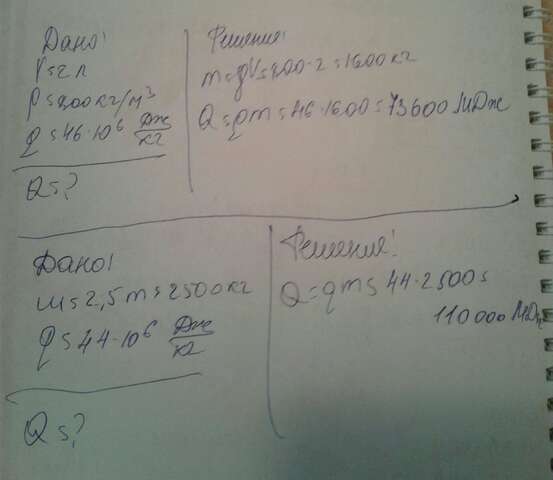 Дано:
V = 2 л
ρ = 800 кг/м³
q = 46·10⁶ Дж/кг
Q = ?
Решение:
m = ρV = 800·2 = 1600 кг
Q = qm = 46·1600 = 73600 МДж
Дано:
m = 2,5 т = 2500 кг
q = 44·10⁶ Дж/кг
Q = ?
Решение:
Q = qm = 44·2500 =
110 000 МДж